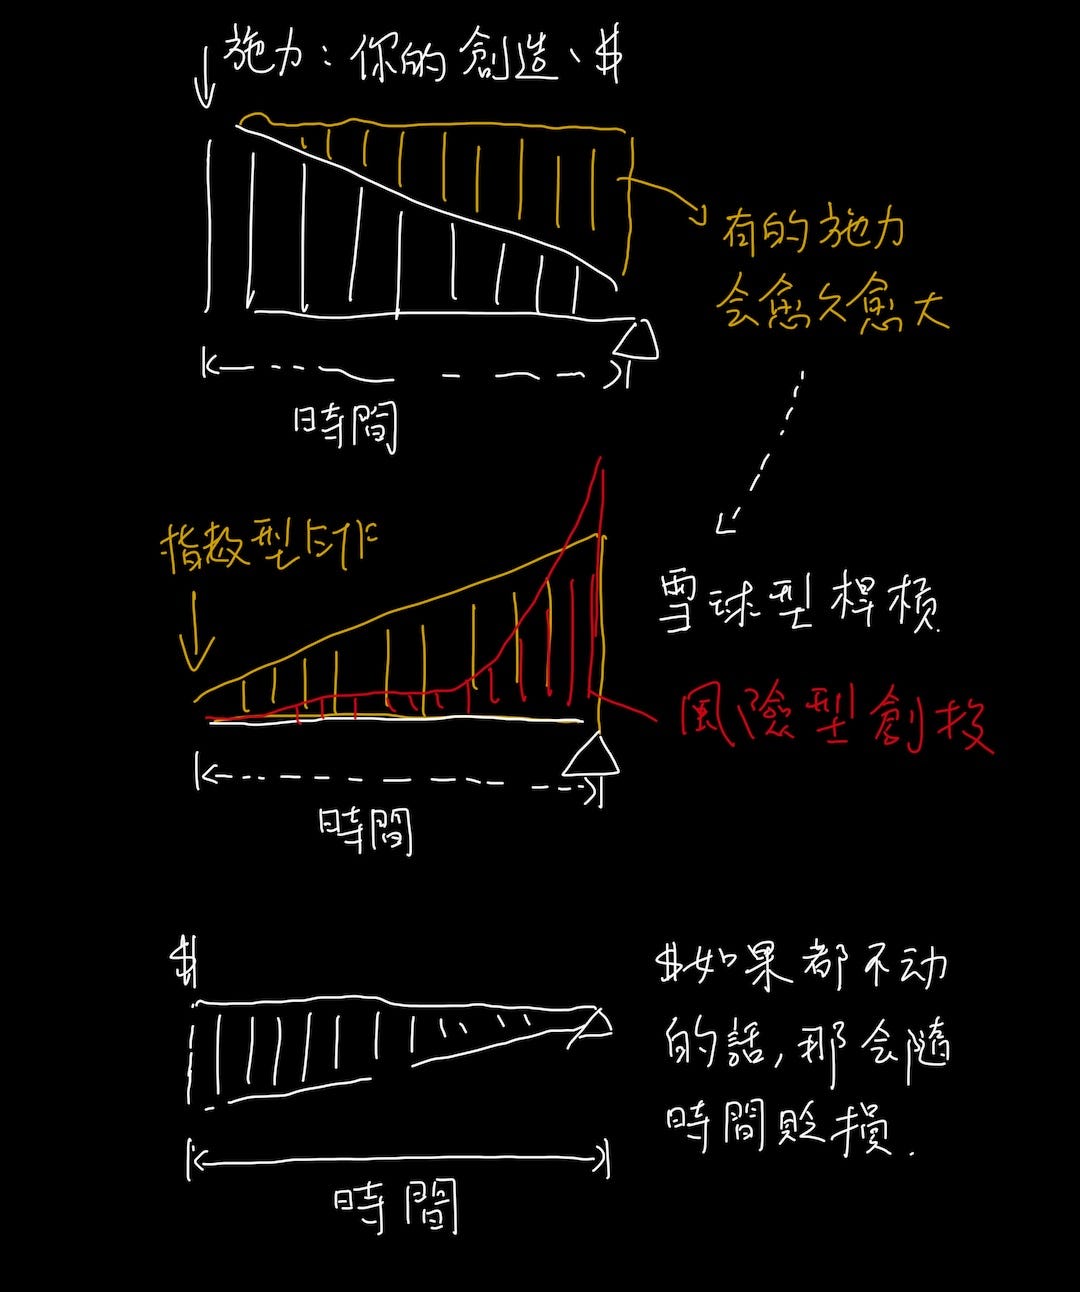 施力:你的創造、$
有的施力
会愈久愈大
時間
指数型ETF
雪球型桿槓
風險型創投
時間
$
$如果都不动
的話,那会隨
時間貶損.
時間